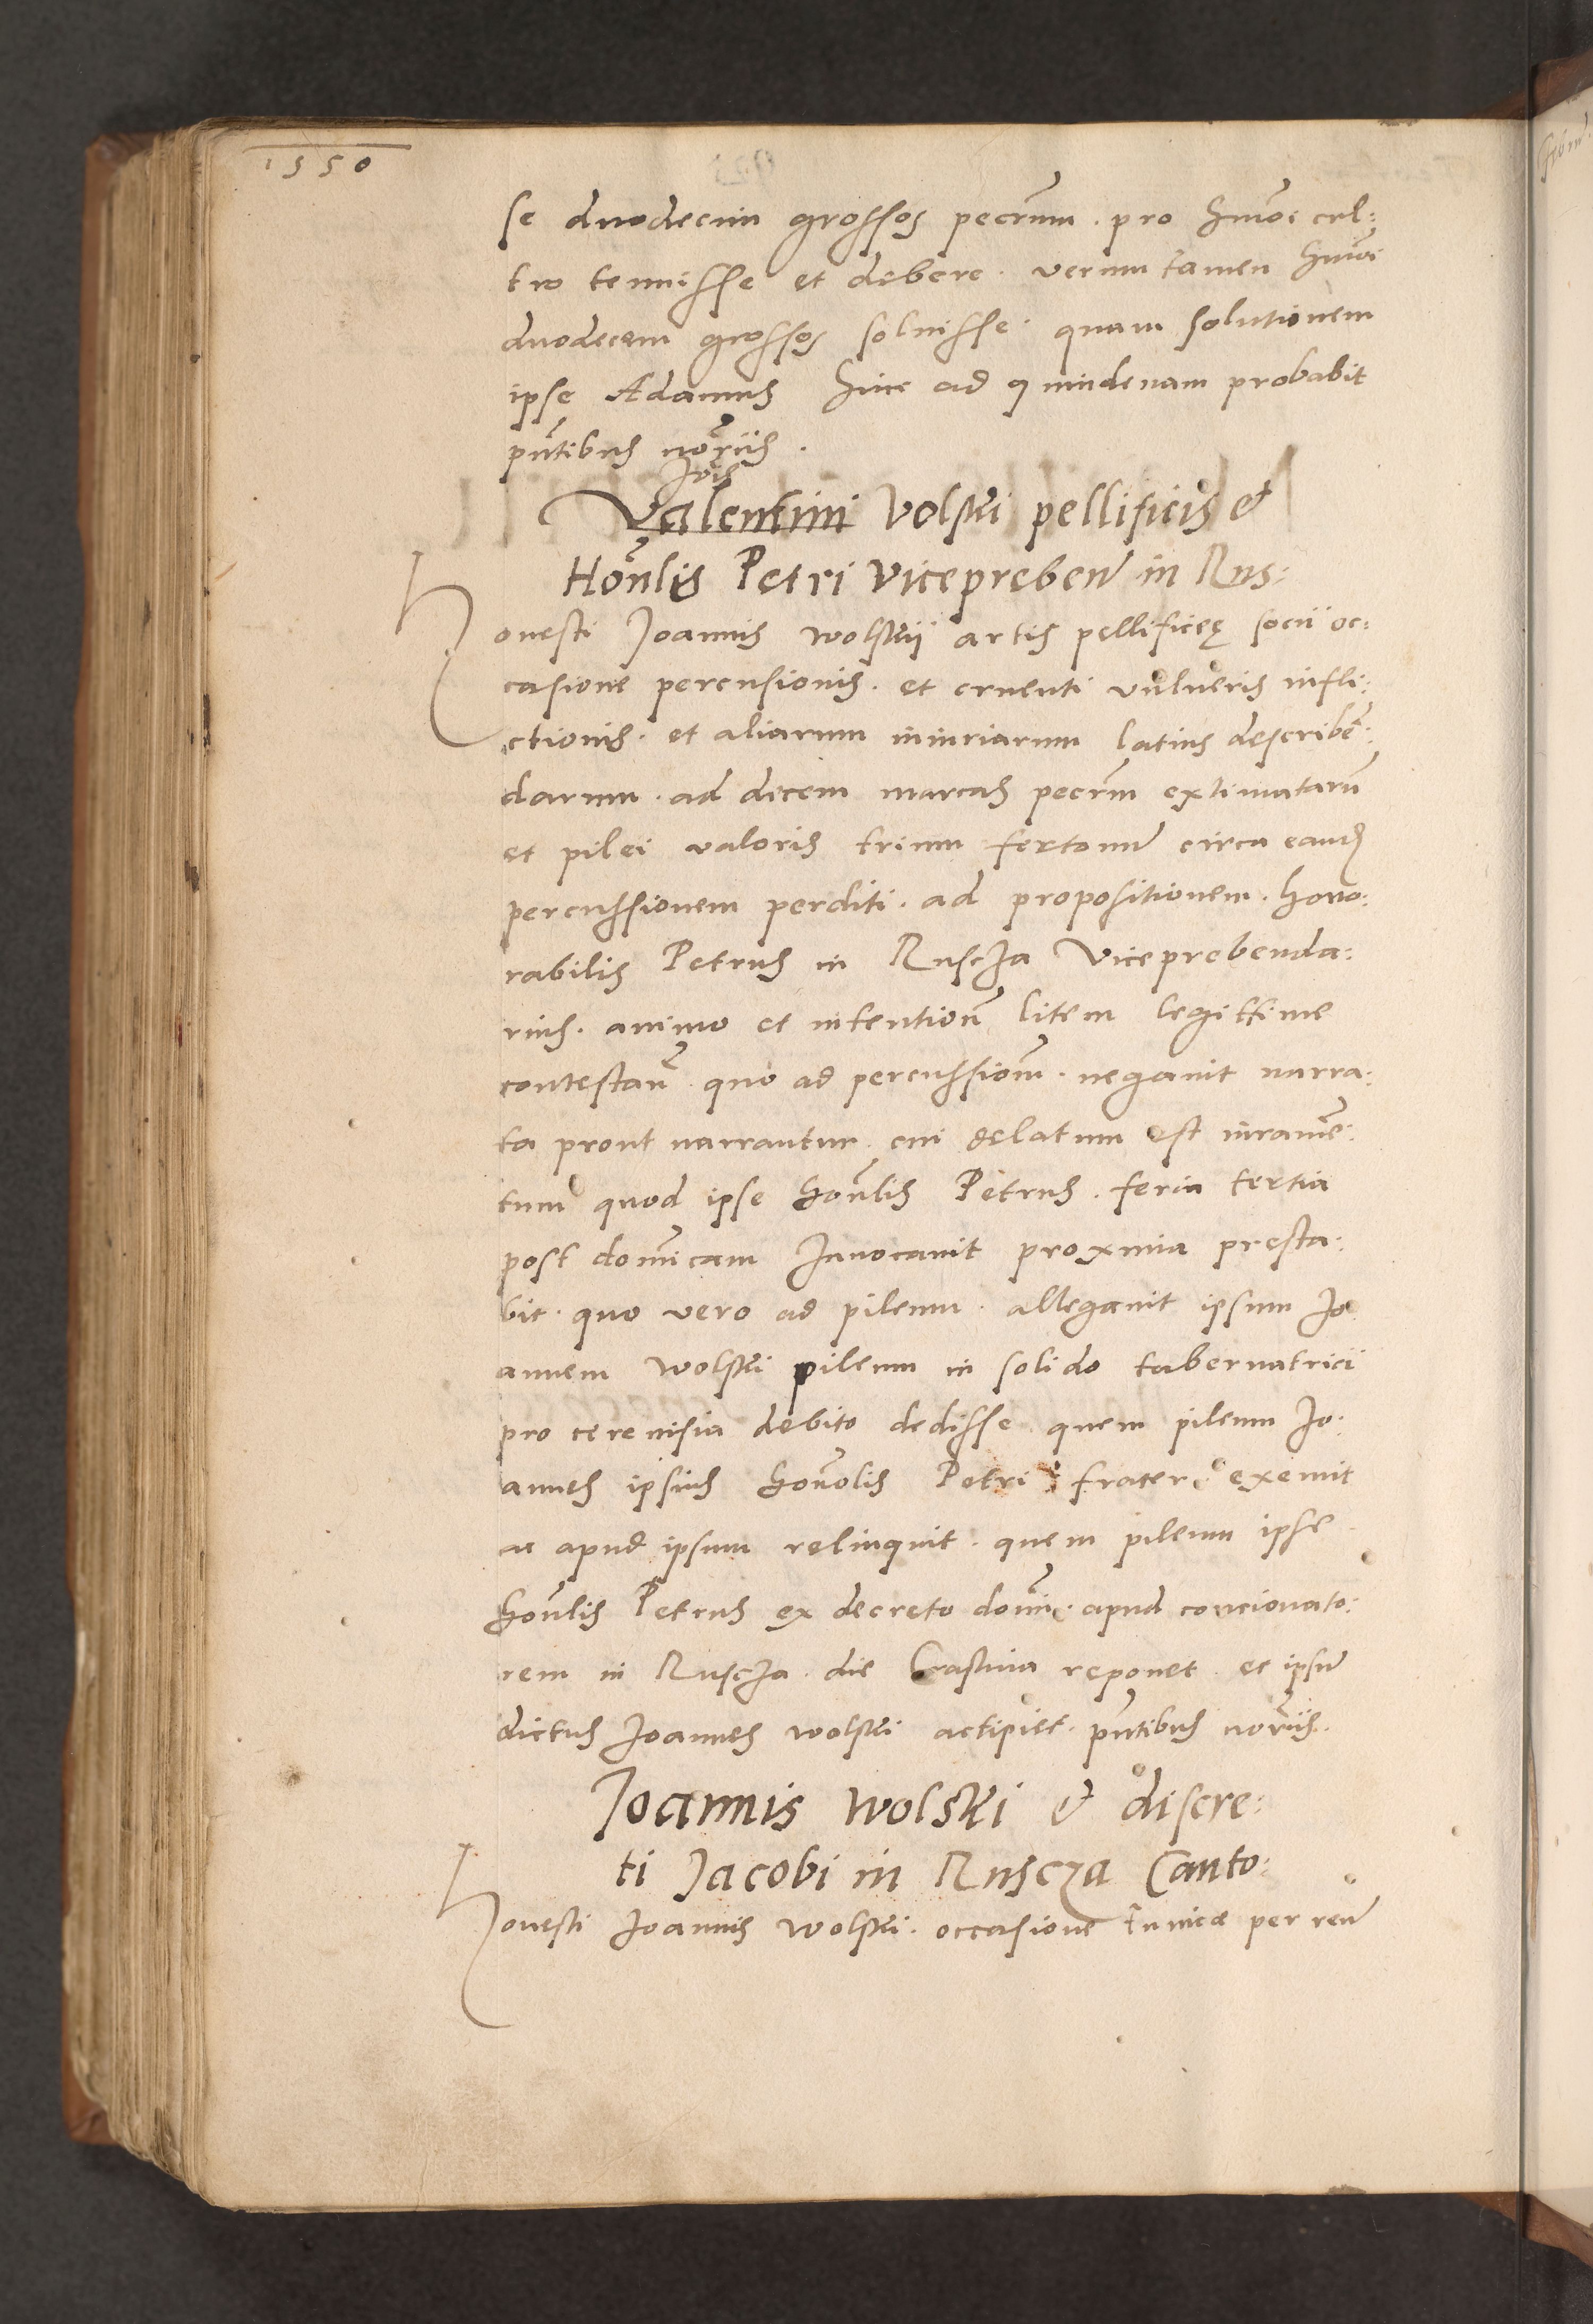 1550
se duodecim grossos pecn̄rum . pro hm̄oi cul:
tro tenuisse et debere . verum tamen hm̄oi
duodecem grossos soluisse . quam solutionem
ipse Adamus hinc ad quindenam probabit
pn̄tibus nōriis .
Jōis
Valentini Volski pellificis &
Hon̄lis Petri Vicepreben̄ in Rus:
Honesti Joannis Wolskij artis pellificeę socii oc:
casione percusionis . et cruenti vulneris infli:
ctionis . et aliarum iniuriarum latius describē:
darum . ad decem marcas pecrm̄ extimatarū
et pilei valoris trium fertonū circa eand
percussionem perditi . ad propositionem . hono:
rabilis Petrus in Ruscza Viceprebenda:
rius . animo et intention̄ litem legittime
contestan̄ . quo ad percussiom̄ . negauit narra:
ta prout narrantur . cui delatum est iuramē:
tum quod ipse hon̄lis Petrus . feria tertia
post domi̅cam Inuocauit proxima presta:
bit . quo vero ad pileum . allegauit ipsum Jo
annem Wolski pileum in solido tabernatrici
pro cereuisia debito dedisse quem pileum Jo:
annes ipsius honolis Petri frater exemit
ac apud ipsum relinquit . quem pileum ipse
hon̄lis Petrus ex decreto domī . apud concionato:
rem in Ruscza . die Crastina reponet . et ipsū
dictus Joannes Wolski actipiet . pn̄tibus nōriis .
Joannis Wolski & discre:
ti Jacobi in Ruscza Canto:
Honesti Joannis Wolski . occasione tunicæ per reū